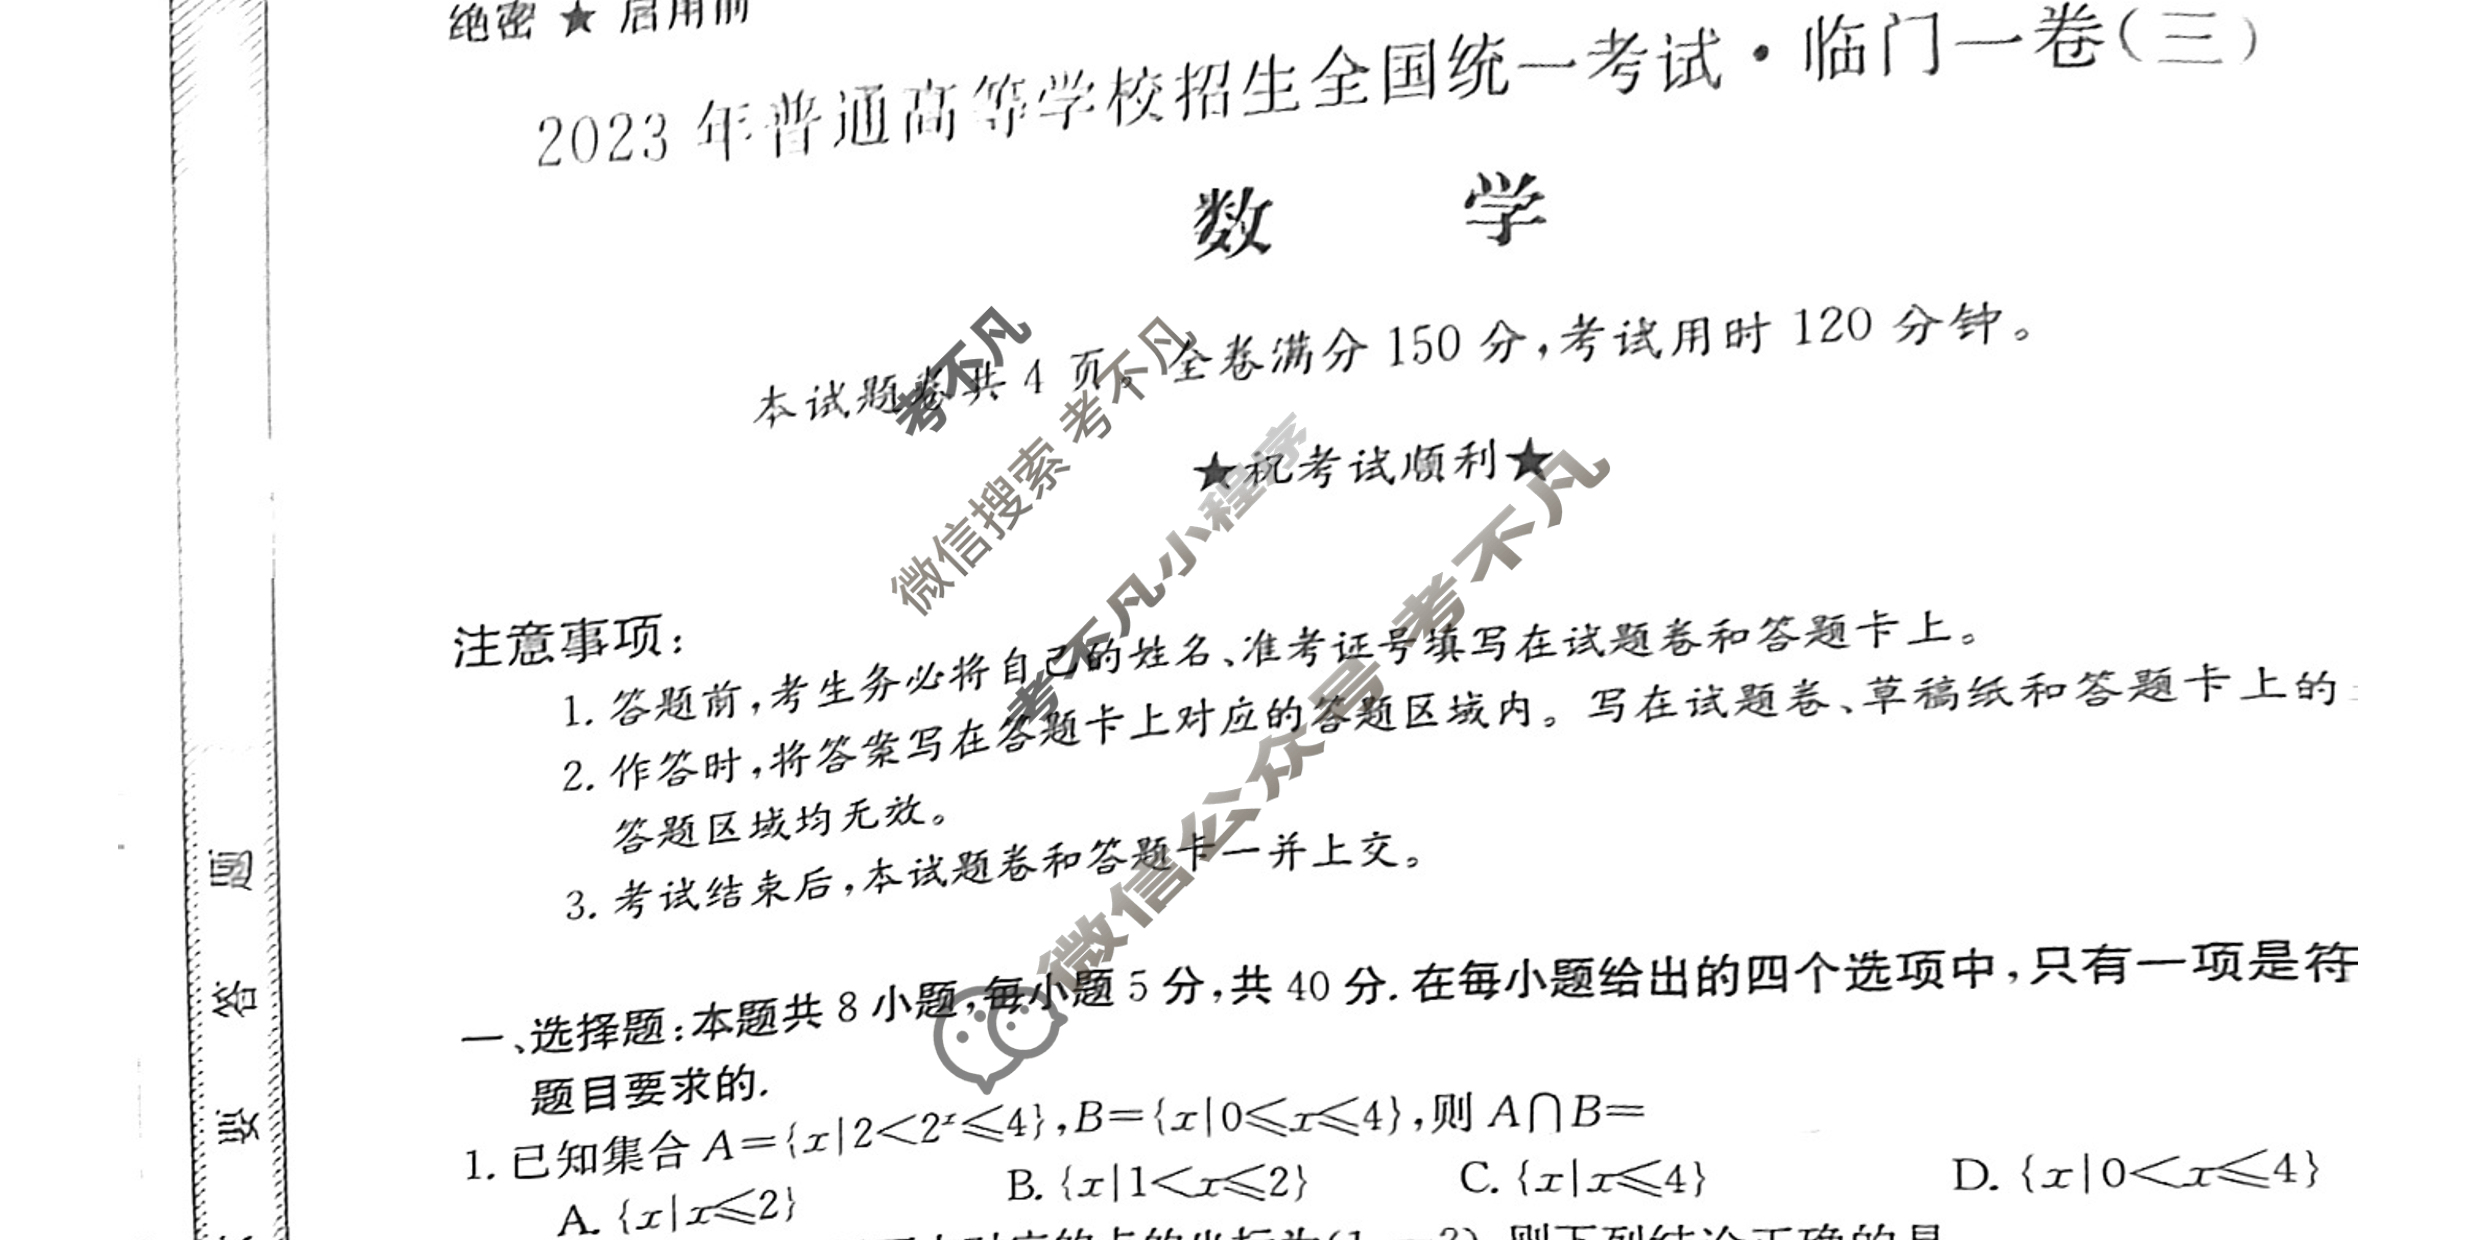 绝密 ★ 启用前
2023 年普通高等学校招生全国统一考试·临门一卷(三)
数 学
本试题卷共 4 页。全卷满分 150 分,考试用时 120 分钟。
★祝考试顺利★
考不凡
微信搜索 考不凡
考不凡小程序
微信公众号 考不凡
注意事项:
1. 答题前,考生务必将自己的姓名、准考证号填写在试题卷和答题卡上。
2. 作答时,将答案写在答题卡上对应的答题区域内。写在试题卷、草稿纸和答题卡上的
答题区域均无效。
3. 考试结束后,本试题卷和答题卡一并上交。
一、选择题:本题共 8 小题,每小题 5 分,共 40 分. 在每小题给出的四个选项中,只有一项是符
题目要求的.
1. 已知集合 A={x|2<2ˣ≤4},B={x|0≤x≤4},则 A∩B=
A. {x|x≤2} B. {x|1<x≤2} C. {x|x≤4} D. {x|0<x≤4}
对应的点的坐标为(1,-2),则下列结论正确的是
题
答
要